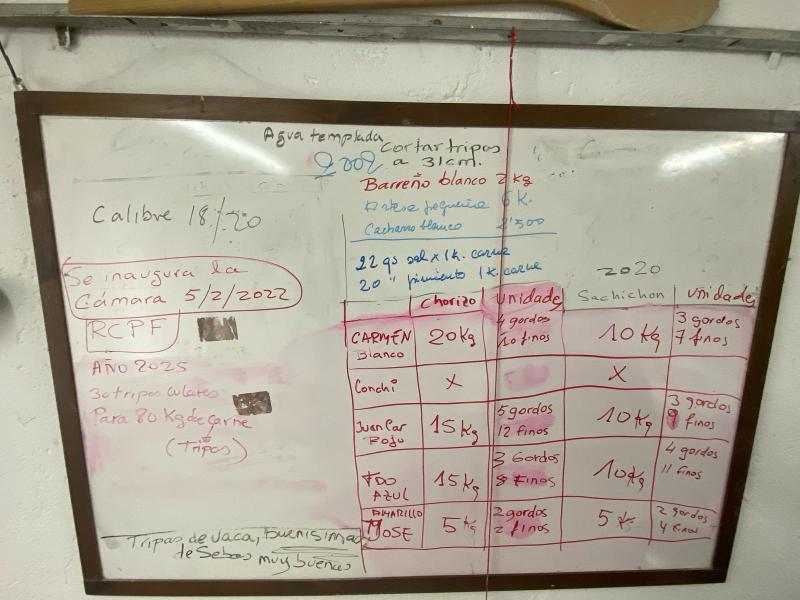 Agua templada
Cortar tripas
a 31cm.
Barreño blanco 2 kg
Artesa pequeña 6 K.
Cacharro blanco 2'500
22 gs sal x 1 k. carne
20 " pimiento 1 K. carne
Calibre 18/20
Se inaugura la
Cámara 5/2/2022
RCPF
AÑO 2025
30 tripas culares
Para 80 Kg de carne
(Tripas)
Tripas de vaca, buenisimas
de Sebas muy buenas
2020
Chorizo Unidades Sachichon Unidades
CARMEN Blanco 20 Kg 4 gordos 10 finos 10 Kg 3 gordos 7 finos
Conchi X X
Juan Car Rojo 15 Kg 5 gordos 12 finos 10 Kg 3 gordos 9 finos
FDO AZUL 15 Kg 3 Gordos 8 finos 10 Kg 4 gordos 11 finos
AMARILLO JOSE 5 Kg 2 gordos 2 finos 5 K. 2 gordos 4 finos